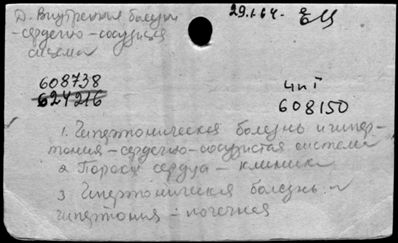 Д. Внутренния болезни
29.1.64. ЕЦ
-сердечно-сосудистая
система
608738
624216
чит
608150
1. Гипертоническая болезнь и гипер-
тония - сердечно-сосудистая система
2 Пороки сердца - клиника
3 Гипертоническая болезнь и
гипертония - почечная